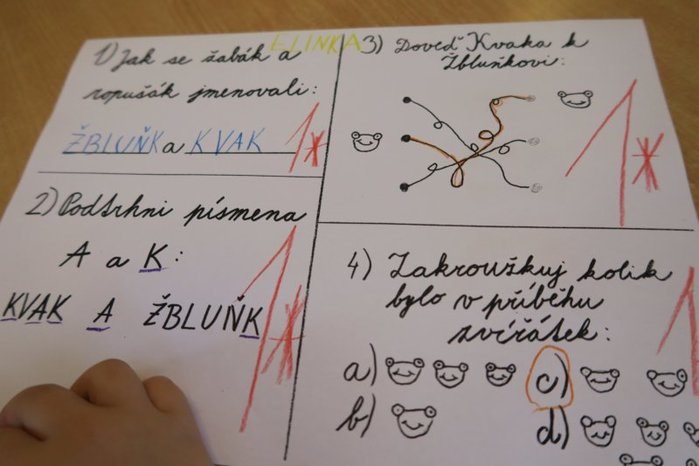 ELINKA
1) Jak se žabák a
ropušák jmenovali:
ŽBLUŇK a KVAK
1*
2) Podtrhni písmena
A a K:
KVAK A ŽBLUŇK
1*
3) Doveď Kvaka k
Žbluňkovi:
1*
4) Zakroužkuj kolik
bylo v příběhu
zvířátek:
a) c)
b) d)
1